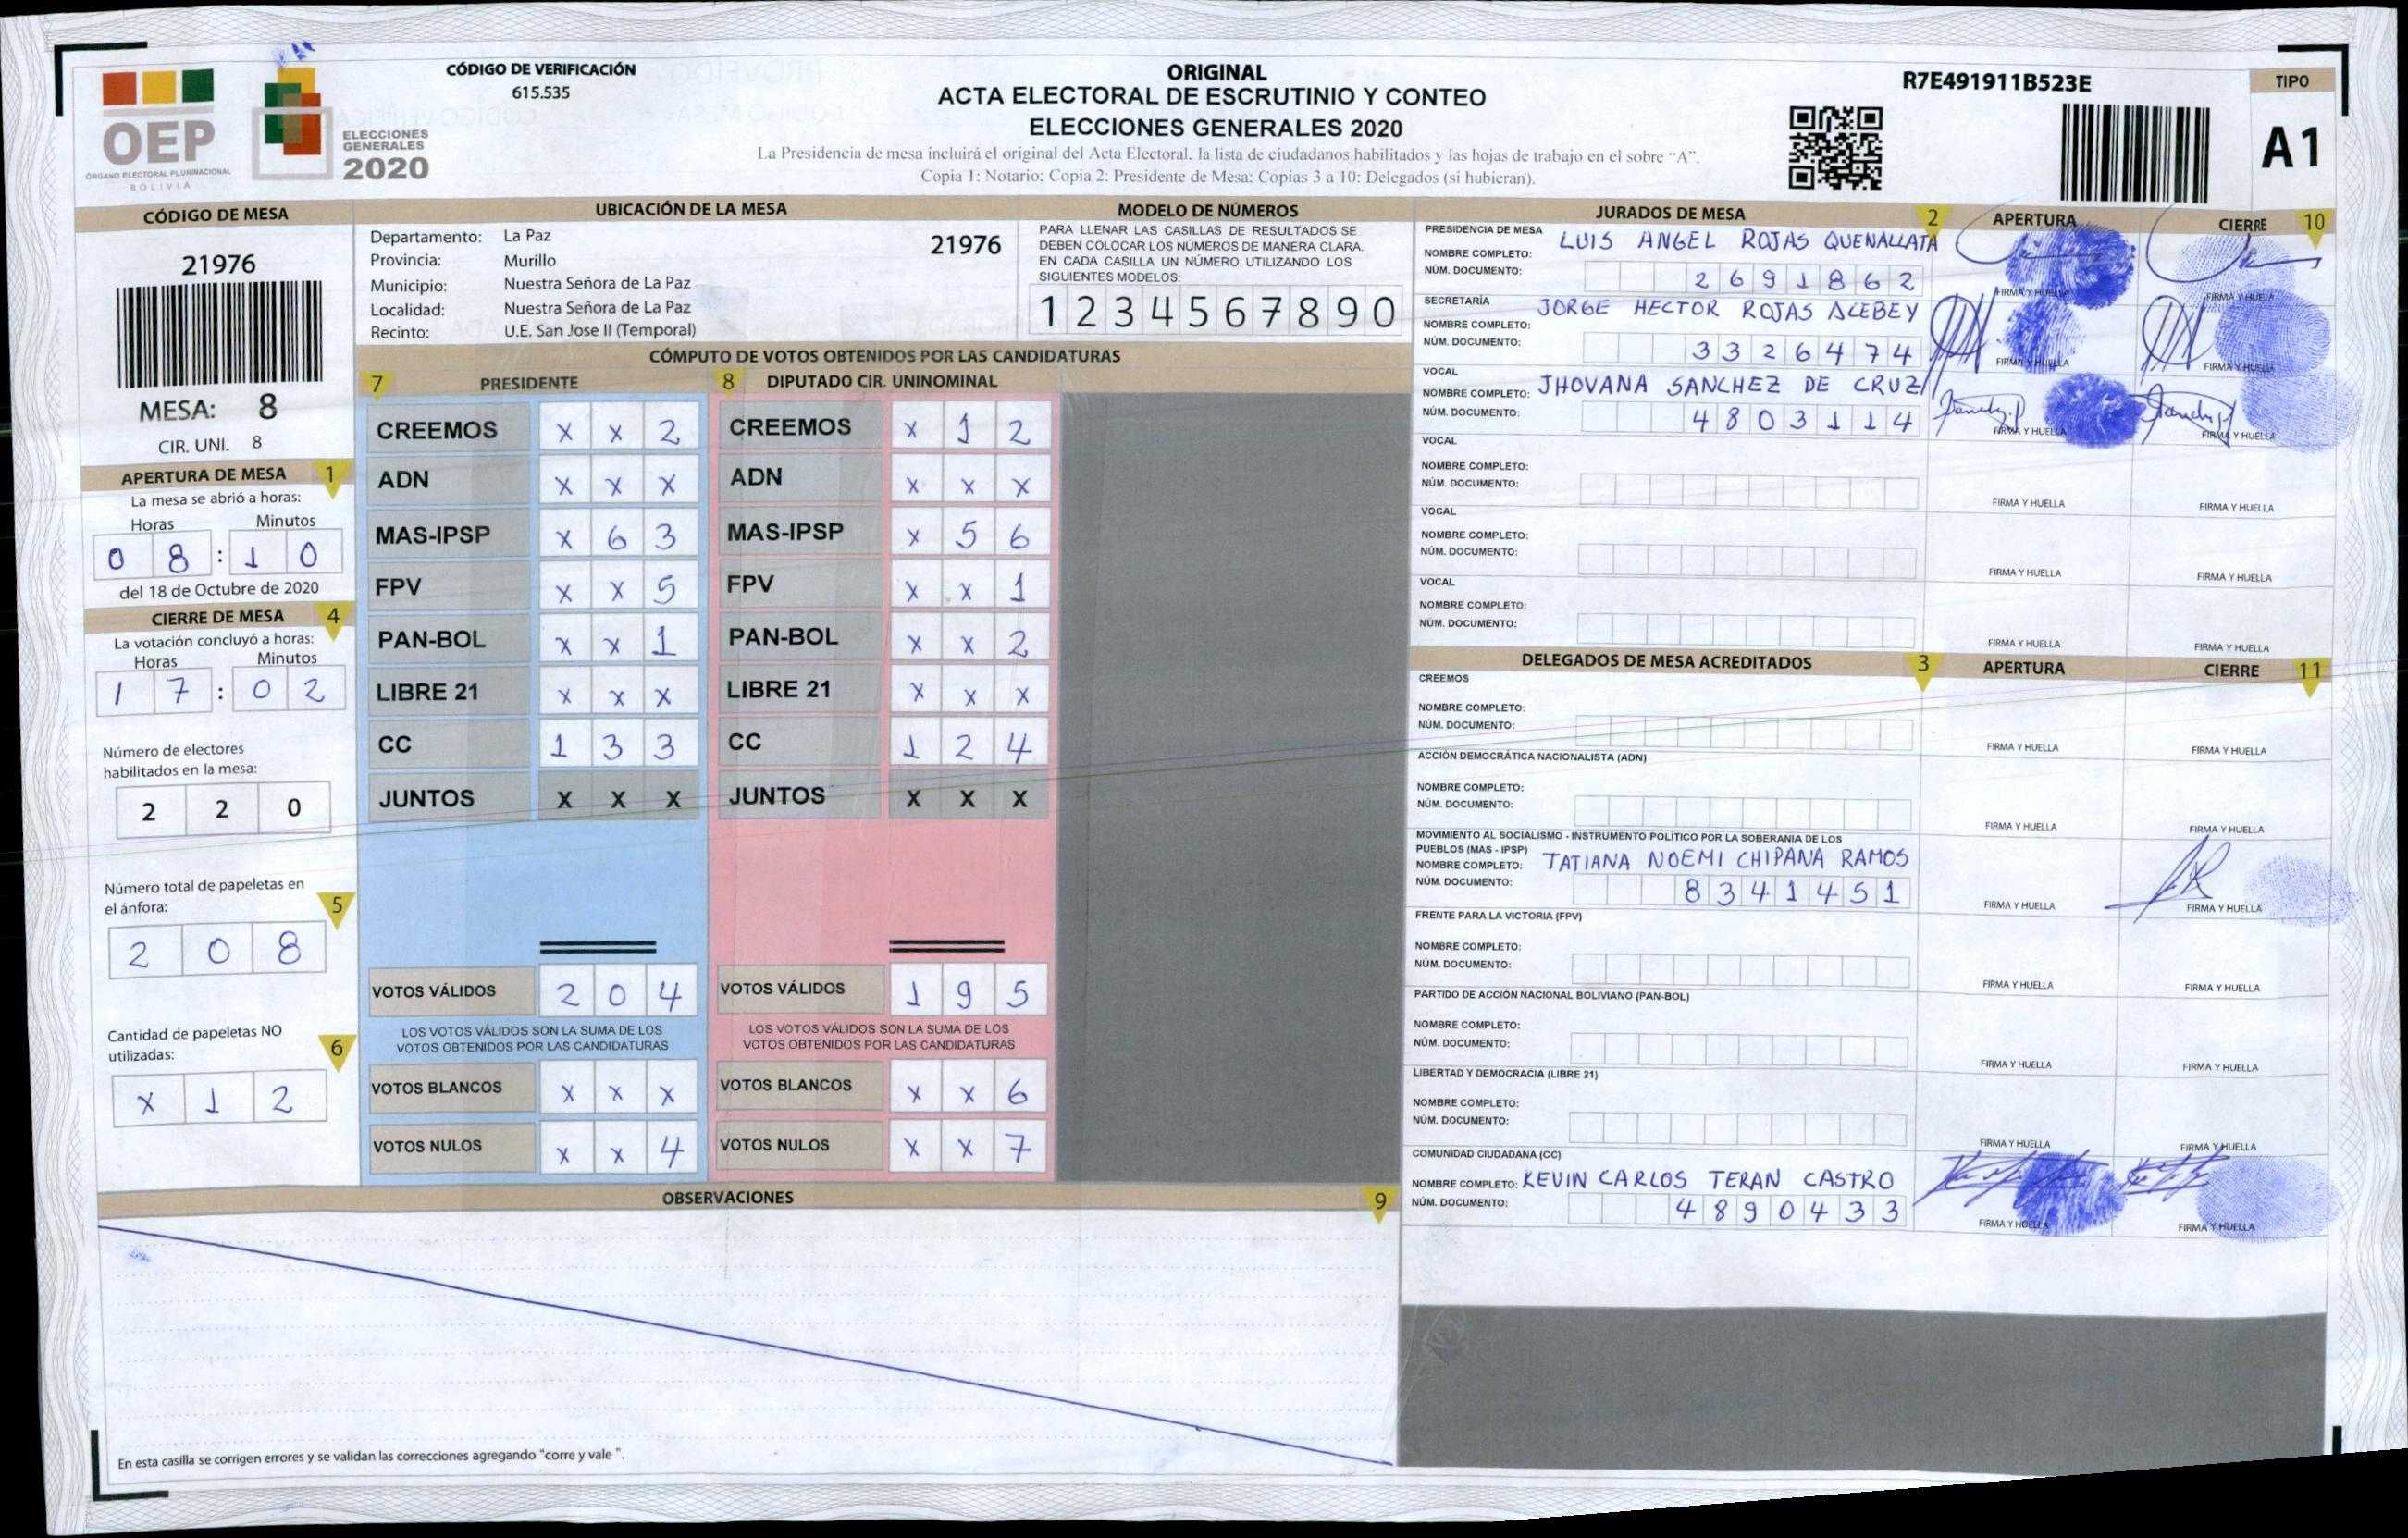 CÓDIGO DE VERIFICACIÓN
615.535
OEP
ÓRGANO ELECTORAL PLURINACIONAL
BOLIVIA
ELECCIONES
GENERALES
2020
ORIGINAL
ACTA ELECTORAL DE ESCRUTINIO Y CONTEO
ELECCIONES GENERALES 2020
La Presidencia de mesa incluirá el original del Acta Electoral, la lista de ciudadanos habilitados y las hojas de trabajo en el sobre "A".
Copia 1: Notario; Copia 2: Presidente de Mesa; Copias 3 a 10: Delegados (si hubieran).
R7E491911B523E
TIPO
A1
CÓDIGO DE MESA
21976
MESA: 8
CIR. UNI. 8
APERTURA DE MESA 1
La mesa se abrió a horas:
Horas Minutos
0 8 : 1 0
del 18 de Octubre de 2020
CIERRE DE MESA 4
La votación concluyó a horas:
Horas Minutos
1 7 : 0 2
Número de electores
habilitados en la mesa:
2 2 0
Número total de papeletas en
el ánfora: 5
2 0 8
Cantidad de papeletas NO
utilizadas: 6
X 1 2
UBICACIÓN DE LA MESA
Departamento: La Paz 21976
Provincia: Murillo
Municipio: Nuestra Señora de La Paz
Localidad: Nuestra Señora de La Paz
Recinto: U.E. San Jose II (Temporal)
MODELO DE NÚMEROS
PARA LLENAR LAS CASILLAS DE RESULTADOS SE
DEBEN COLOCAR LOS NÚMEROS DE MANERA CLARA.
EN CADA CASILLA UN NÚMERO, UTILIZANDO LOS
SIGUIENTES MODELOS:
1 2 3 4 5 6 7 8 9 0
CÓMPUTO DE VOTOS OBTENIDOS POR LAS CANDIDATURAS
7 PRESIDENTE
CREEMOS X X 2
ADN X X X
MAS-IPSP X 6 3
FPV X X 5
PAN-BOL X X 1
LIBRE 21 X X X
CC 1 3 3
JUNTOS X X X
VOTOS VÁLIDOS 2 0 4
LOS VOTOS VÁLIDOS SON LA SUMA DE LOS
VOTOS OBTENIDOS POR LAS CANDIDATURAS
VOTOS BLANCOS X X X
VOTOS NULOS X X 4
8 DIPUTADO CIR. UNINOMINAL
CREEMOS X 1 2
ADN X X X
MAS-IPSP X 5 6
FPV X X 1
PAN-BOL X X 2
LIBRE 21 X X X
CC 1 2 4
JUNTOS X X X
VOTOS VÁLIDOS 1 9 5
LOS VOTOS VÁLIDOS SON LA SUMA DE LOS
VOTOS OBTENIDOS POR LAS CANDIDATURAS
VOTOS BLANCOS X X 6
VOTOS NULOS X X 7
OBSERVACIONES 9
En esta casilla se corrigen errores y se validan las correcciones agregando "corre y vale ".
JURADOS DE MESA 2 APERTURA CIERRE 10
PRESIDENCIA DE MESA
NOMBRE COMPLETO: LUIS ANGEL ROJAS QUENALLATA
NÚM. DOCUMENTO: 2 6 9 1 8 6 2
FIRMA Y HUELLA FIRMA Y HUELLA
SECRETARÍA
NOMBRE COMPLETO: JORGE HECTOR ROJAS ALEBEY
NÚM. DOCUMENTO: 3 3 2 6 4 7 4
FIRMA Y HUELLA FIRMA Y HUELLA
VOCAL
NOMBRE COMPLETO: JHOVANA SANCHEZ DE CRUZ
NÚM. DOCUMENTO: 4 8 0 3 1 1 4
FIRMA Y HUELLA FIRMA Y HUELLA
VOCAL
NOMBRE COMPLETO:
NÚM. DOCUMENTO:
FIRMA Y HUELLA FIRMA Y HUELLA
VOCAL
NOMBRE COMPLETO:
NÚM. DOCUMENTO:
FIRMA Y HUELLA FIRMA Y HUELLA
VOCAL
NOMBRE COMPLETO:
NÚM. DOCUMENTO:
FIRMA Y HUELLA FIRMA Y HUELLA
DELEGADOS DE MESA ACREDITADOS 3 APERTURA CIERRE 11
CREEMOS
NOMBRE COMPLETO:
NÚM. DOCUMENTO:
FIRMA Y HUELLA FIRMA Y HUELLA
ACCIÓN DEMOCRÁTICA NACIONALISTA (ADN)
NOMBRE COMPLETO:
NÚM. DOCUMENTO:
FIRMA Y HUELLA FIRMA Y HUELLA
MOVIMIENTO AL SOCIALISMO - INSTRUMENTO POLÍTICO POR LA SOBERANÍA DE LOS
PUEBLOS (MAS - IPSP)
NOMBRE COMPLETO: TATIANA NOEMI CHIPANA RAMOS
NÚM. DOCUMENTO: 8 3 4 1 4 5 1
FIRMA Y HUELLA FIRMA Y HUELLA
FRENTE PARA LA VICTORIA (FPV)
NOMBRE COMPLETO:
NÚM. DOCUMENTO:
FIRMA Y HUELLA FIRMA Y HUELLA
PARTIDO DE ACCIÓN NACIONAL BOLIVIANO (PAN-BOL)
NOMBRE COMPLETO:
NÚM. DOCUMENTO:
FIRMA Y HUELLA FIRMA Y HUELLA
LIBERTAD Y DEMOCRACIA (LIBRE 21)
NOMBRE COMPLETO:
NÚM. DOCUMENTO:
FIRMA Y HUELLA FIRMA Y HUELLA
COMUNIDAD CIUDADANA (CC)
NOMBRE COMPLETO: KEVIN CARLOS TERAN CASTRO
NÚM. DOCUMENTO: 4 8 9 0 4 3 3
FIRMA Y HUELLA FIRMA Y HUELLA